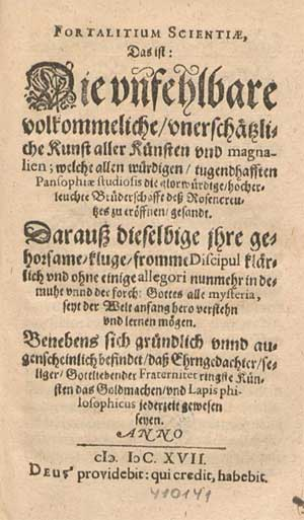 FORTALITIUM SCIENTIÆ,
Das ist:
Die vnfehlbare
volkommeliche/vnerschätzli-
che Kunst aller Künsten vnd magna-
lien; welche allen würdigen/tugendhafften
Pansophiæ studiosis die glorwürdige/hocher-
leuchte Brüderschafft deß Rosencreu-
tzes zu eröffnen/gesandt.
Darauß dieselbige jhre ge-
horsame/kluge/fromme Discipul klär-
lich vnd ohne einige allegori nunmehr in de-
muht vnnd der forch: Gottes alle mysteria,
seyt der Welt anfang hero verstehn
vnd lernen mögen.
Benebens sich gründlich vnnd au-
genscheinlich befindet/daß Ehrngedachter/se-
liger/Gottliebender Fraternitet ringste Kün-
sten das Goldmachen/vnd Lapis phi-
losophicus jederzeit gewesen
seyen.
ANNO
cIɔ. Iɔc. XVII.
DEUS providebit: qui credit, habebit.
410141